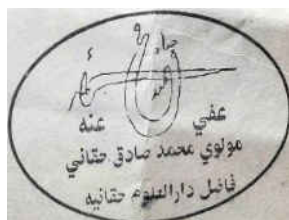 عفي عنه
مولوي محمد صادق حقاني
فاضل دارالعلوم حقانيه